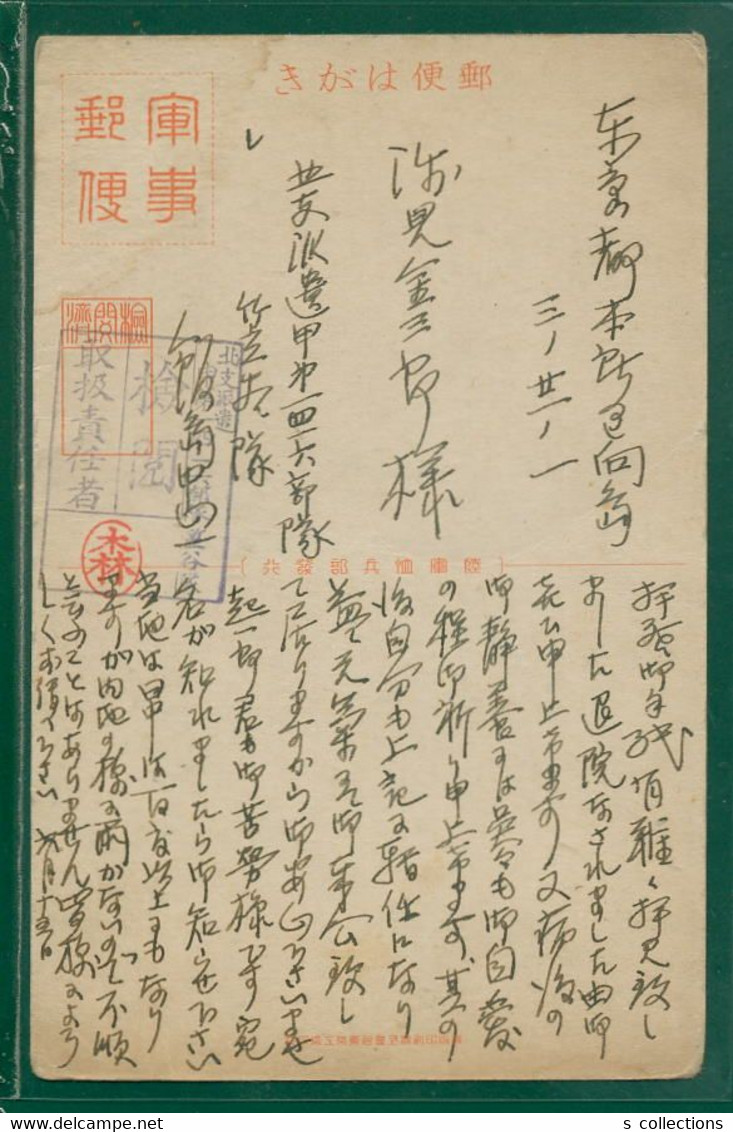 郵便はがき
軍事
郵便
東京都本所区向島
三ノ廿一ノ一
渋見金三郎様
北支派遣甲第一四一六部隊
隊
飯島
検閲済
北支派遣
検閲
取扱責任者
木林
(陸軍恤兵部發行)
拝啓御手紙有難く拝見致し
ました退院なされました由御
喜び申上げます 又病後の
御静養には呉々も御自愛
の程御祈り申上げます、其の
後自分も上記に転任になり
益々元気にて御奉公致し
て居りますから御安心下さいませ
起一郎君も御苦労様です 宛
名が知れましたら御知らせ下さい
当地は日中は百度以上にもなり
ますが内地の様に雨がないので不順
と云ふことはありません 皆様によろ
しくお伝へ下さい 六月十五日
s collections